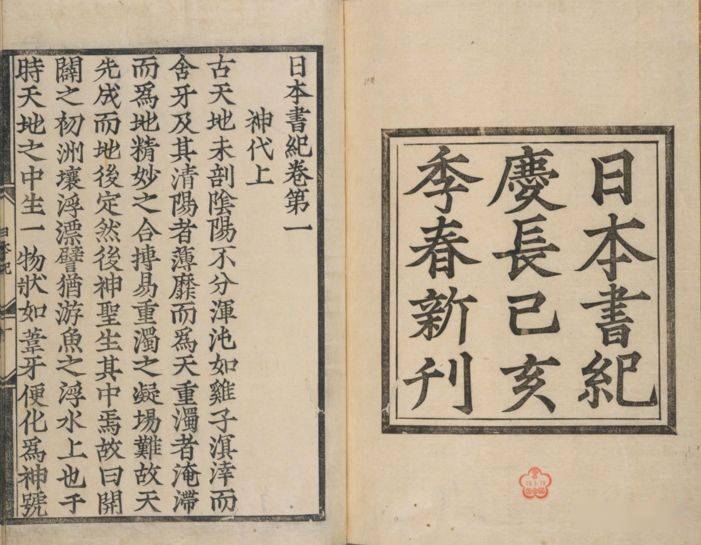 日本書紀
慶長己亥
季春新刊
日本書紀卷第一
神代上
古天地未剖陰陽不分渾沌如雞子溟涬而
含牙及其清陽者薄靡而爲天重濁者淹滯
而爲地精妙之合摶易重濁之凝場難故天
先成而地後定然後神聖生其中焉故曰開
闢之初洲壤浮漂譬猶游魚之浮水上也于
時天地之中生一物狀如葦牙便化爲神號
日本紀 一